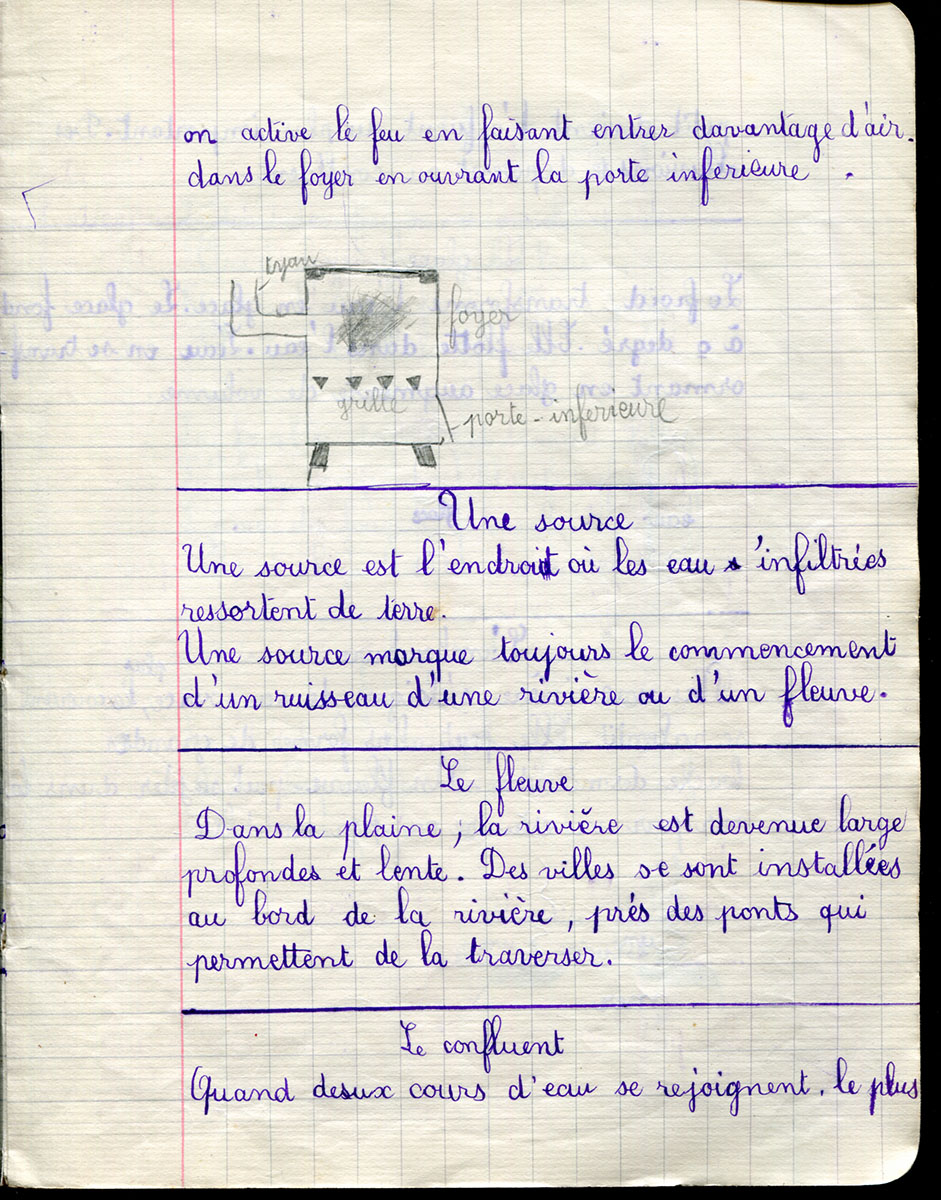 on active le feu en faisant entrer davantage d'air.
dans le foyer en ouvrant la porte inferieure .
tyau
foyer
grille
porte-inferieure
Une source
Une source est l'endroit où les eau s'infiltrées
ressortent de terre.
Une source marque toujours le commencement
d'un ruisseau d'une rivière ou d'un fleuve.
Le fleuve
Dans la plaine, la rivière est devenue large
profondes et lente. Des villes se sont installées
au bord de la rivière, prés des ponts qui
permettent de la traverser.
Le confluent
Quand desux cours d'eau se rejoignent, le plus